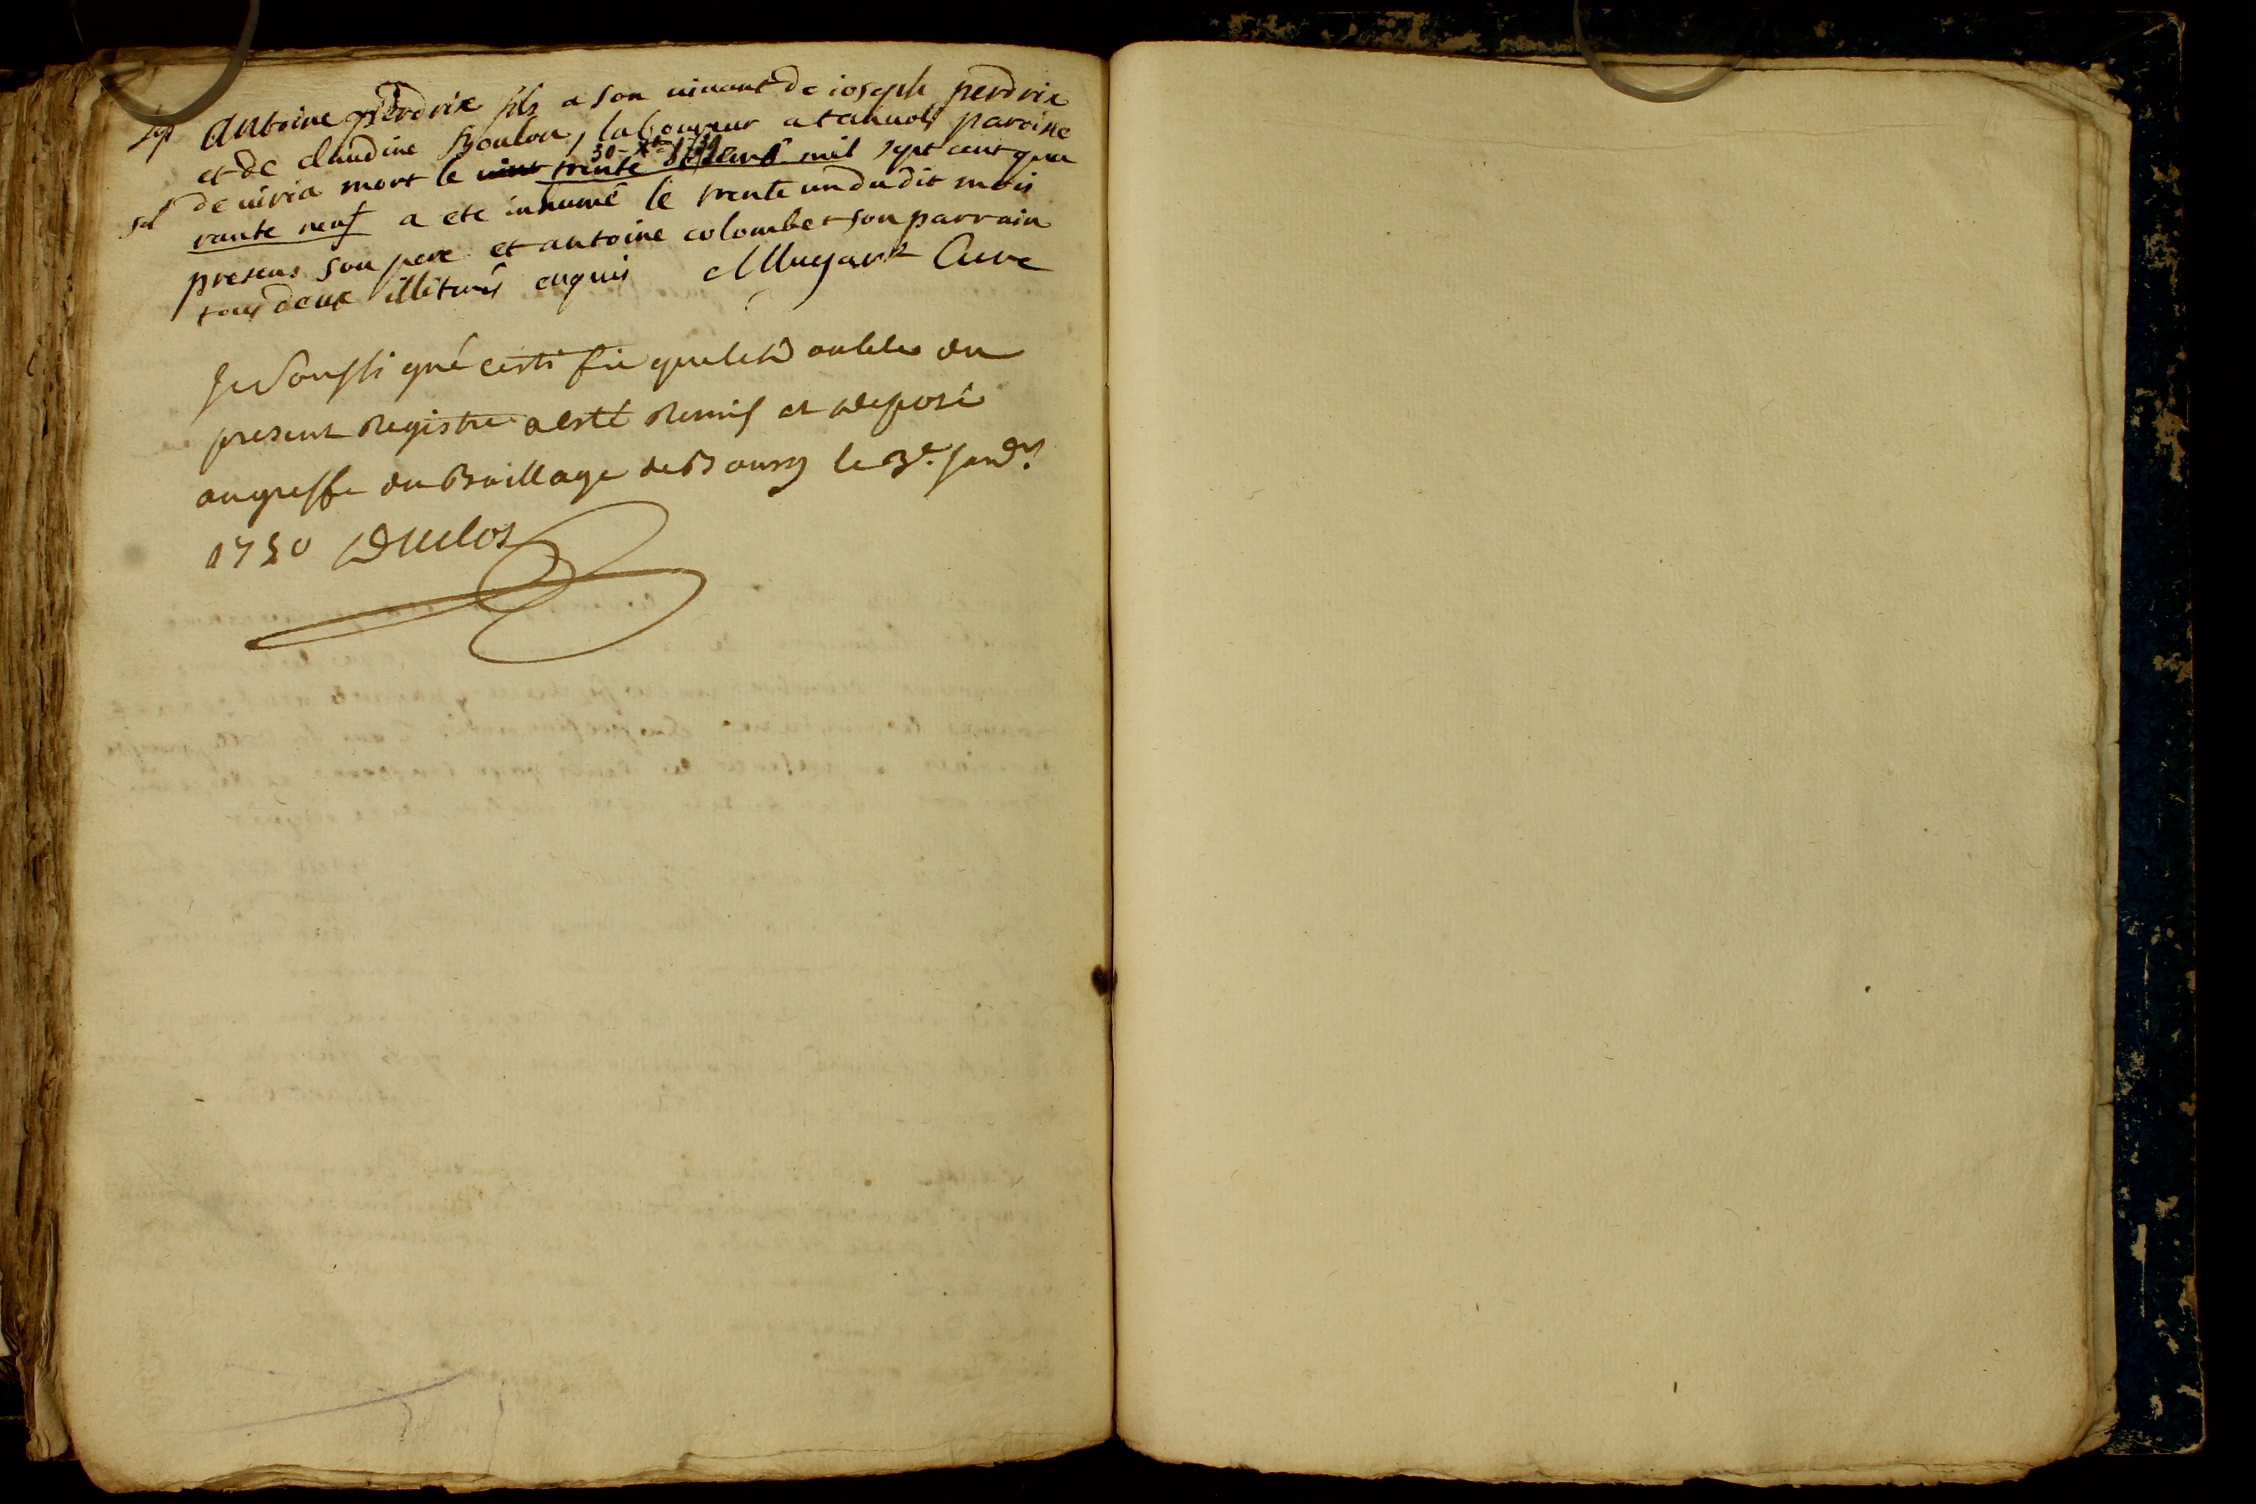 Antoine perdrix fils a son vivant de ioseph perdrix
et de claudine boulon, laboureur a tahuoly paroisse
30 - Xbre 1749
de viria mort le trente decembre mil sept cent qua
rante neuf a ete inhumé le trente un du dit mois
presens son pere et antoine colombet son parrain
tous deux illiturés enquis Curé
Je Soussigné certifie que le double du
present Registre a esté Remis et deposé
au greffe du Baillage de Bourg le 3e. Janvr.
1750 Duclos